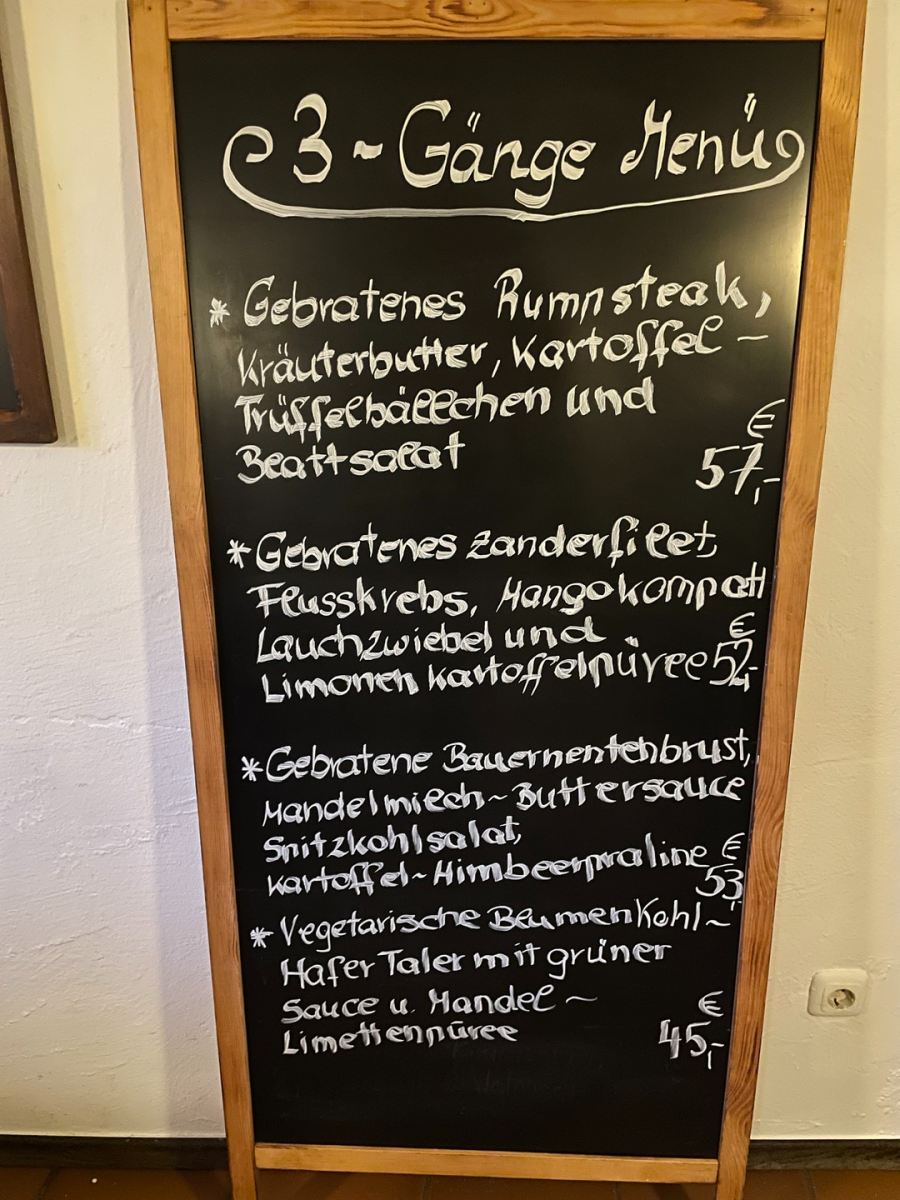 3~Gänge Menü
* Gebratenes Rumpsteak,
Kräuterbutter, Kartoffel~
Trüffelbällchen und
Blattsalat
€
57,-
* Gebratenes Zanderfilet,
Flusskrebs, Mangokompott
Lauchzwiebel und
€
Limonen Kartoffelpüree 52,-
* Gebratene Bauernentenbrust,
Mandelmilch~Buttersauce
Spitzkohlsalat,
Kartoffel~Himbeerpraline €
53,-
* Vegetarische Blumenkohl~
Hafer Taler mit grüner
Sauce u. Mandel~
€
Limettenpüree
45,-